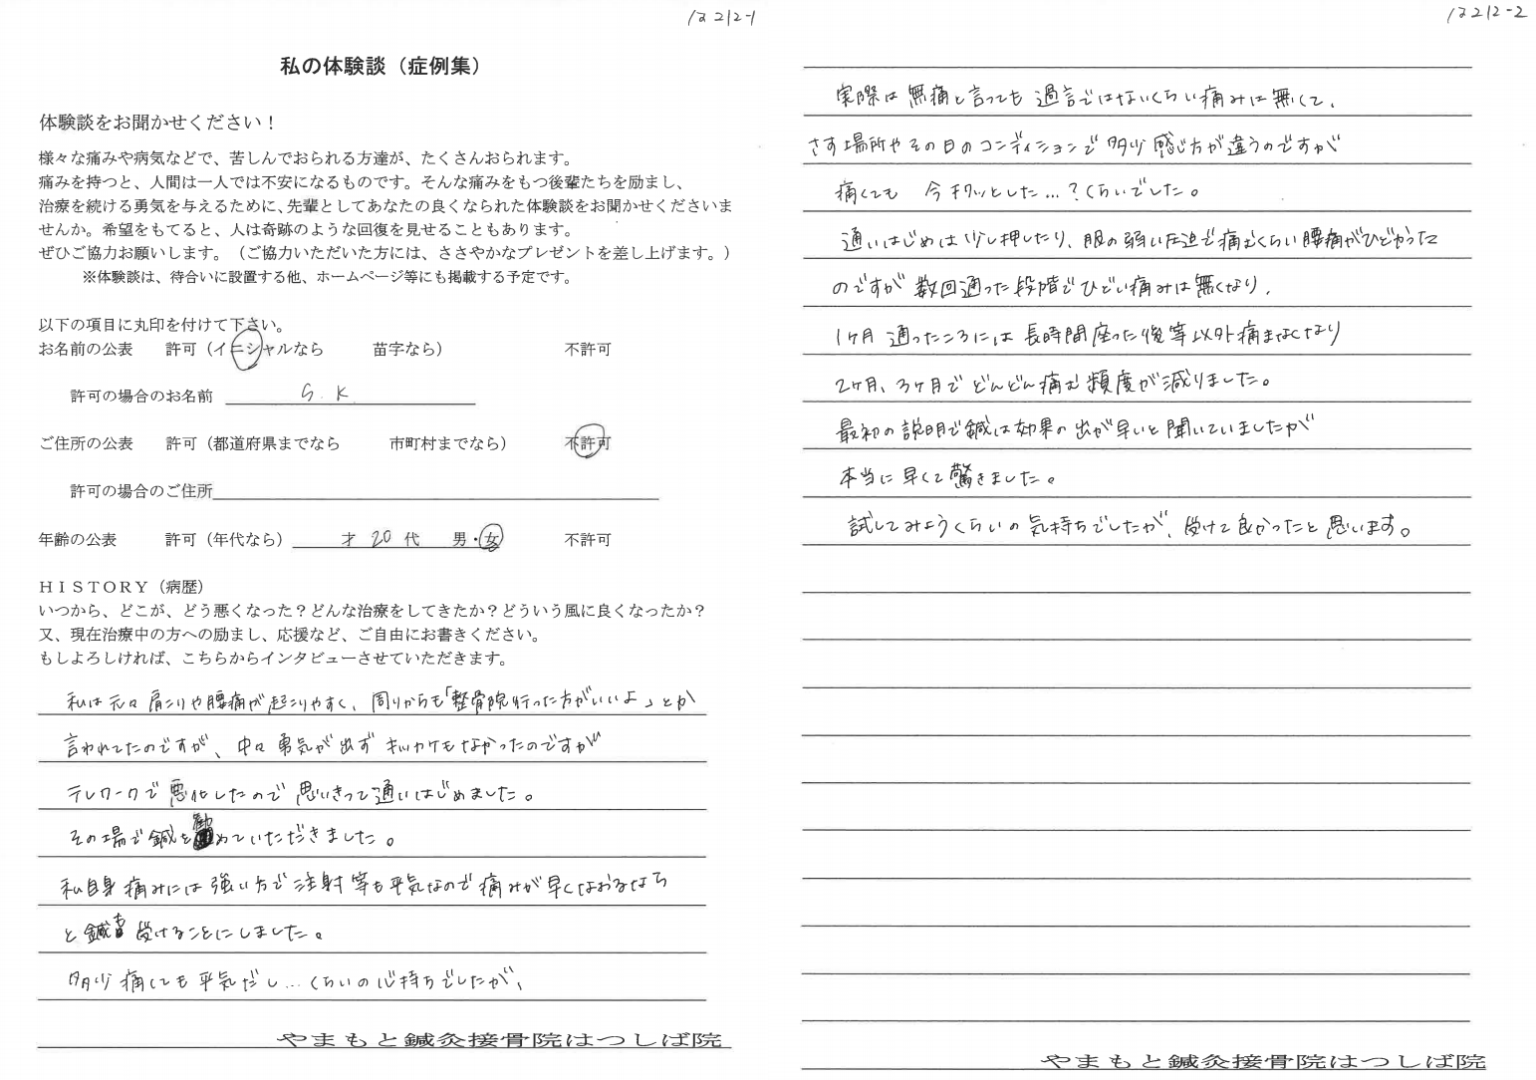 12212-1
私の体験談（症例集）
体験談をお聞かせください！
様々な痛みや病気などで、苦しんでおられる方達が、たくさんおられます。
痛みを持つと、人間は一人では不安になるものです。そんな痛みをもつ後輩たちを励まし、
治療を続ける勇気を与えるために、先輩としてあなたの良くなられた体験談をお聞かせくださいま
せんか。希望をもてると、人は奇跡のような回復を見せることもあります。
ぜひご協力お願いします。（ご協力いただいた方には、ささやかなプレゼントを差し上げます。）
※体験談は、待合いに設置する他、ホームページ等にも掲載する予定です。
以下の項目に丸印を付けて下さい。
お名前の公表　許可（イニシャルなら　苗字なら）　不許可
許可の場合のお名前　S．K．
ご住所の公表　許可（都道府県までなら　市町村までなら）　不許可
許可の場合のご住所
年齢の公表　許可（年代なら）　才　20代　男・女　不許可
ＨＩＳＴＯＲＹ（病歴）
いつから、どこが、どう悪くなった？どんな治療をしてきたか？どういう風に良くなったか？
又、現在治療中の方への励まし、応援など、ご自由にお書きください。
もしよろしければ、こちらからインタビューさせていただきます。
私は元々肩こりや腰痛が起こりやすく、周りからも「整骨院行った方がいいよ」とか
言われてたのですが、中々勇気が出ずキッカケもなかったのですが
テレワークで悪化したので思いきって通いはじめました。
その場で鍼を勧めていただきました。
私自身痛みには強い方で注射等も平気なので痛みが早くなおるなら
と鍼も受けることにしました。
多少痛くても平気だし…くらいの心持ちでしたが、
やまもと鍼灸接骨院はつしば院
12212-2
実際は無痛と言っても過言ではないくらい痛みは無くて、
さす場所やその日のコンディションで多少感じ方が違うのですが
痛くても　今チクッとした…？くらいでした。
通いはじめは少し押したり、服の弱い圧迫で痛むくらい腰痛がひどかった
のですが数回通った段階でひどい痛みは無くなり、
1ヶ月通ったころには長時間座った後等以外痛まなくなり
2ヶ月、3ヶ月でどんどん痛む頻度が減りました。
最初の説明で鍼は効果の出が早いと聞いていましたが
本当に早くて驚きました。
試してみようくらいの気持ちでしたが、受けて良かったと思います。
やまもと鍼灸接骨院はつしば院